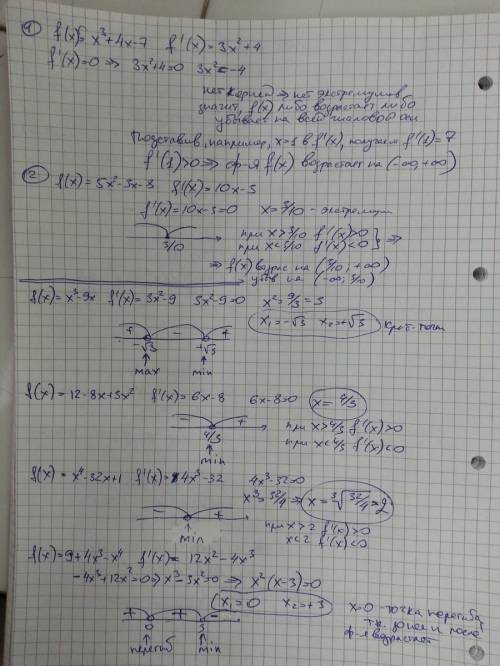 1 f(x)=x³+4x-7 f'(x)=3x²+4
f'(x)=0 ⇒ 3x²+4=0 3x²=-4
нет корней ⇒ нет экстремумов
значит, f(x) либо возрастает либо
убывает на всей числовой оси
Подставив, например, x=1 в f'(x), получаем f'(1)=7
f'(1)>0 ⇒ ф-я f(x) возрастает на (-∞,+∞)
2 f(x)=5x²-3x-3 f'(x)=10x-3
f'(x)=10x-3=0 x=3/10 - экстремум
3/10
при x>3/10 f'(x)>0
при x<3/10 f'(x)<0 } ⇒
⇒ f(x) возрас на (3/10; +∞)
убыв на (-∞; 3/10)
f(x)=x³-9x f'(x)=3x²-9 3x²-9=0 x²=9/3=3
x₁=-√3 x₂=+√3 крит. точки
+ - +
-√3 +√3
max min
f(x)=12-8x+3x² f'(x)=6x-8 6x-8=0 x=4/3
- +
4/3
min
при x>4/3 f'(x)>0
при x<4/3 f'(x)<0
f(x)=x⁴-32x+1 f'(x)=4x³-32 4x³-32=0
x³=32/4 ⇒ x=³√32/4=2
- +
min
при x>2 f'(x)>0
x<2 f'(x)<0
f(x)=9+4x³-x⁴ f'(x)=12x²-4x³
-4x³+12x²=0 ⇒ x³-3x²=0 ⇒ x²(x-3)=0
x₁=0 x₂=+3
+ + -
0 3
перегиб min
x=0 -точка перегиба
т.к. до нея и после
ф-я возрастает